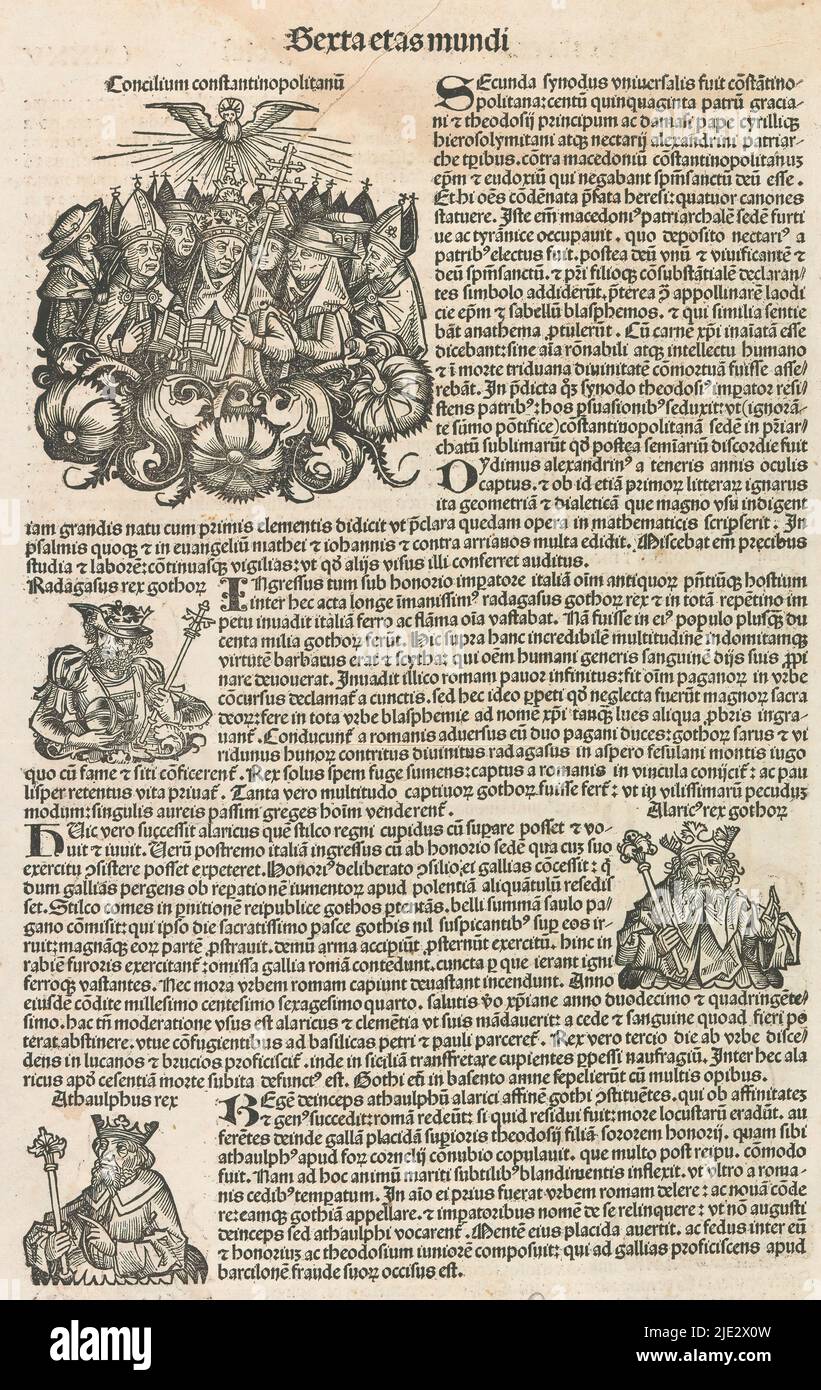 Sexta etas mundi
Concilium constantinopolitanū
SEcunda synodus vniuersalis fuit cōstātino-
politana: centū quinquaginta patrū gracia-
ni ⁊ theodosij principum ac damasi pape cyrilliqꝫ
hierosolymitani atqꝫ nectarij alexandrini patriar-
che tp̄ibus. cōtra macedoniū cōstantinopolitanuꝫ
ep̄m ⁊ eudoxiū qui negabant sp̄m sanctū deū esse.
Et hi oēs cōdēnata p̄fata heresi: quatuor canones
statuere. Iste em̄ macedoniꝰ patriarchalē sedē furti
ue ac tyrānice occupauit. quo deposito nectariꝰ a
patribꝰ electus fuit. postea deū vnū ⁊ viuificantē ⁊
deū sp̄m sanctū. ⁊ pr̄i filioqꝫ cōsubstātialē declaran-
tes simbolo addiderūt. p̄terea ꝙ appollinarē laodi
cie ep̄m ⁊ sabellū blasphemos. ⁊ qui similia sentie
bāt anathema ꝓtulerūt. Cū carnē xp̄i inaīatā esse
dicebant: sine aīa rōnabili atqꝫ intellectu humano
⁊ ī morte triduana diuinitatē cōmortuā fuisse asse-
rebāt. In p̄dicta qͦꝫ synodo theodosiꝰ imꝑator resi-
stens patribꝰ: hos ꝑsuasionibꝰ seduxit: vt (ignorā-
te sūmo pōtifice) cōstantinopolitanā sedē in pr̄iar-
chatū sublimarūt qd̓ postea semīariū discordie fuit
DYdimus alexandrinꝰ a teneris annis oculis
captus. ⁊ ob id etiā primoꝝ litteraꝝ ignarus
ita geometriā ⁊ dialeticā que magno vsu indigent
iam grandis natu cum primis elementis didicit vt p̄clara quedam opera in mathematicis scripserit. In
psalmis quoqꝫ ⁊ in euangeliū mathei ⁊ iohannis ⁊ contra arrianos multa edidit. Miscebat em̄ precibus
studia ⁊ laborē: cōtinuasqꝫ vigilias: vt qd̓ alijs visus illi conferret auditus.
Radagasus rex gothoꝝ
INgressus tum sub honorio imꝑatore italiā oīm antiquoꝝ p̄ntiūqꝫ hostium
inter hec acta longe īmanissimꝰ radagasus gothoꝝ rex ⁊ in totā repētino im
petu inuadit italiā ferro ac flāma oīa vastabat. Nā fuisse in eiꝰ populo plusqꝫ du
centa milia gothoꝝ ferūt. Hic supra hanc incredibilē multitudinē indomitamqꝫ
virtutē barbarus erat ⁊ scytha: qui oēm humani generis sanguinē dijs suis ꝓpi
nare deuouerat. Inuadit illico romam pauor infinitus: fit oīm paganoꝝ in vrbe
cōcursus declamat̄ a cunctis. sed hec ideo ꝑpeti qd̓ neglecta fuerūt magnoꝝ sacra
deoꝝ: fere in tota vrbe blasphemie ad nomē xp̄i tanqꝫ lues aliqua ꝓbris ingra-
uant̄. Conducunt̄ a romanis aduersus eū duo pagani duces: gothoꝝ sarus ⁊ vl
ridunus hunoꝝ contritus diuinitus radagasus in aspero fesulani montis iugo
quo cū fame ⁊ siti cōficerent̄. Rex solus spem fuge sumens: captus a romanis in vincula conijcit̄: ac pau
lisper retentus vita priuat̄. Tanta vero multitudo captiuoꝝ gothoꝝ fuisse fert̄: vt in vilissimarū pecuduꝫ
modum: singulis aureis passim greges hoīm venderent̄.
Alaricꝰ rex gothoꝝ
HUic vero successit alaricus quē stilco regni cupidus cū suꝑare posset ⁊ vo-
uit ⁊ iuuit. Uerū postremo italiā ingressus cū ab honorio sedē qua cuꝫ suo
exercitu ꝯsistere posset expeteret. Honoriꝰ deliberato ꝯsilio, ei gallias cōcessit: q̄
dum gallias pergens ob repationē iumentoꝝ apud polentiā aliquātulū resedis
set. Stilco comes in ꝑnitionē reipublice gothos ꝑtentās. belli summā saulo pa
gano cōmisit: qui ipso die sacratissimo pasce gothis nil suspicantibꝰ suꝑ eos ir-
ruit: magnāqꝫ eoꝝ partē ꝓstrauit. demū arma accipiūt ꝓsternūt exercitū. hinc in
rabiē furoris exercitant̄: omissa gallia romā contedunt. cuncta ꝑ que ierant igni
ferroqꝫ vastantes. Nec mora vrbem romam capiunt deuastant incendunt. Anno
eiusdē cōdite millesimo centesimo sexagesimo quarto. salutis v̄o xp̄iane anno duodecimo ⁊ quadringēte-
simo. hac tn̄ moderatione vsus est alaricus ⁊ clemētia vt suis mādauerit: a cede ⁊ sanguine quoad fieri po
terat abstinere. vtue cōfugientibus ad basilicas petri ⁊ pauli parceret̄. Rex vero tercio die ab vrbe disce-
dens in lucanos ⁊ brucios proficiscit̄. inde in siciliā transfretare cupientes ꝑpessi naufragiū. Inter hec ala
ricus apd̓ cesentiā morte subita defunctꝰ est. Gothi eū in basento amne sepelierūt cū multis opibus.
Athaulphus rex
REgē deinceps athaulphū alarici affinē gothi ꝯstituētes. qui ob affinitateꝫ
⁊ genꝰ succedit: romā redeūt: si quid residui fuit: more locustarū eradūt. au
ferētes deinde gallā placidā superioris theodosij filiā sororem honorij. quam sibi
athaulphꝰ apud foꝝ cornelij cōnubio copulauit. que multo post reipu. cōmodo
fuit. Nam ad hoc animū mariti subtilibꝰ blandimentis inflexit. vt vltro a roma-
nis cedibꝰ temperatum. In aīo ei prius fuerat vrbem romam delere: ac nouā cōde
re: eamqꝫ gothiā appellare. ⁊ imꝑatoribus nomē de se relinquere: vt nō augusti
deinceps sed athaulphi vocarent̄. Mentē eius placida auertit. ac fedus inter eū
⁊ honoriuꝫ ac theodosium iuniorē composuit: qui ad gallias proficiscens apud
barcilonē fraude suoꝝ occisus est.
alamy
alamy
Image ID: 2JE2X0W
www.alamy.com